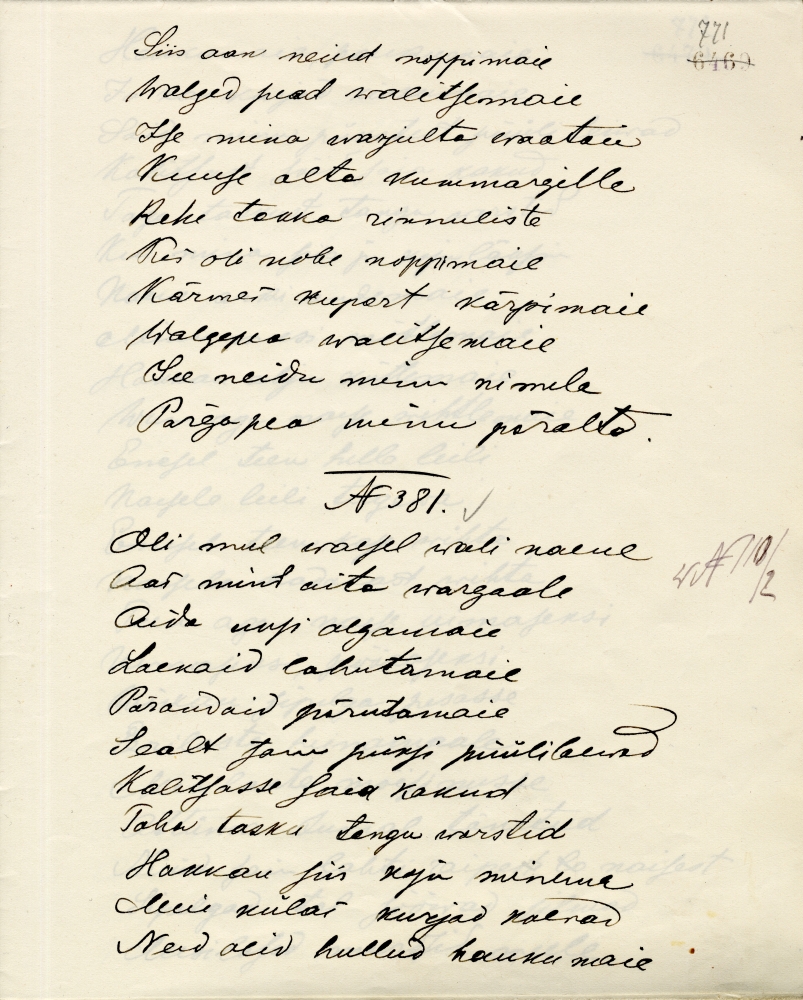 771
6469
Siis aan neiud noppimaie
Walged pead walitsemaie
Ise mina warjulta waatan
Kuuse alta kummargille
Rehe takka rinnuliste
Kes oli nobe noppimaie
Kärmes kupart kärpimaie
Walgepea walitsemaie
See neidu minu nimele
Pärgapea minu päralta.
№ 381.
Oli mul waesel wali naene
Aas mind aita wargaale
Aida uksi algamaie
Laekaid lahutamaie
Parandaid põrutamaie
Sealt sain püksi püülileewad
Kalitsasse saia kakud
Taha tasku tengu worstid
Hakkan siis koju minema
Meie külas kurjad koerad
Need olid hullud haukumaie